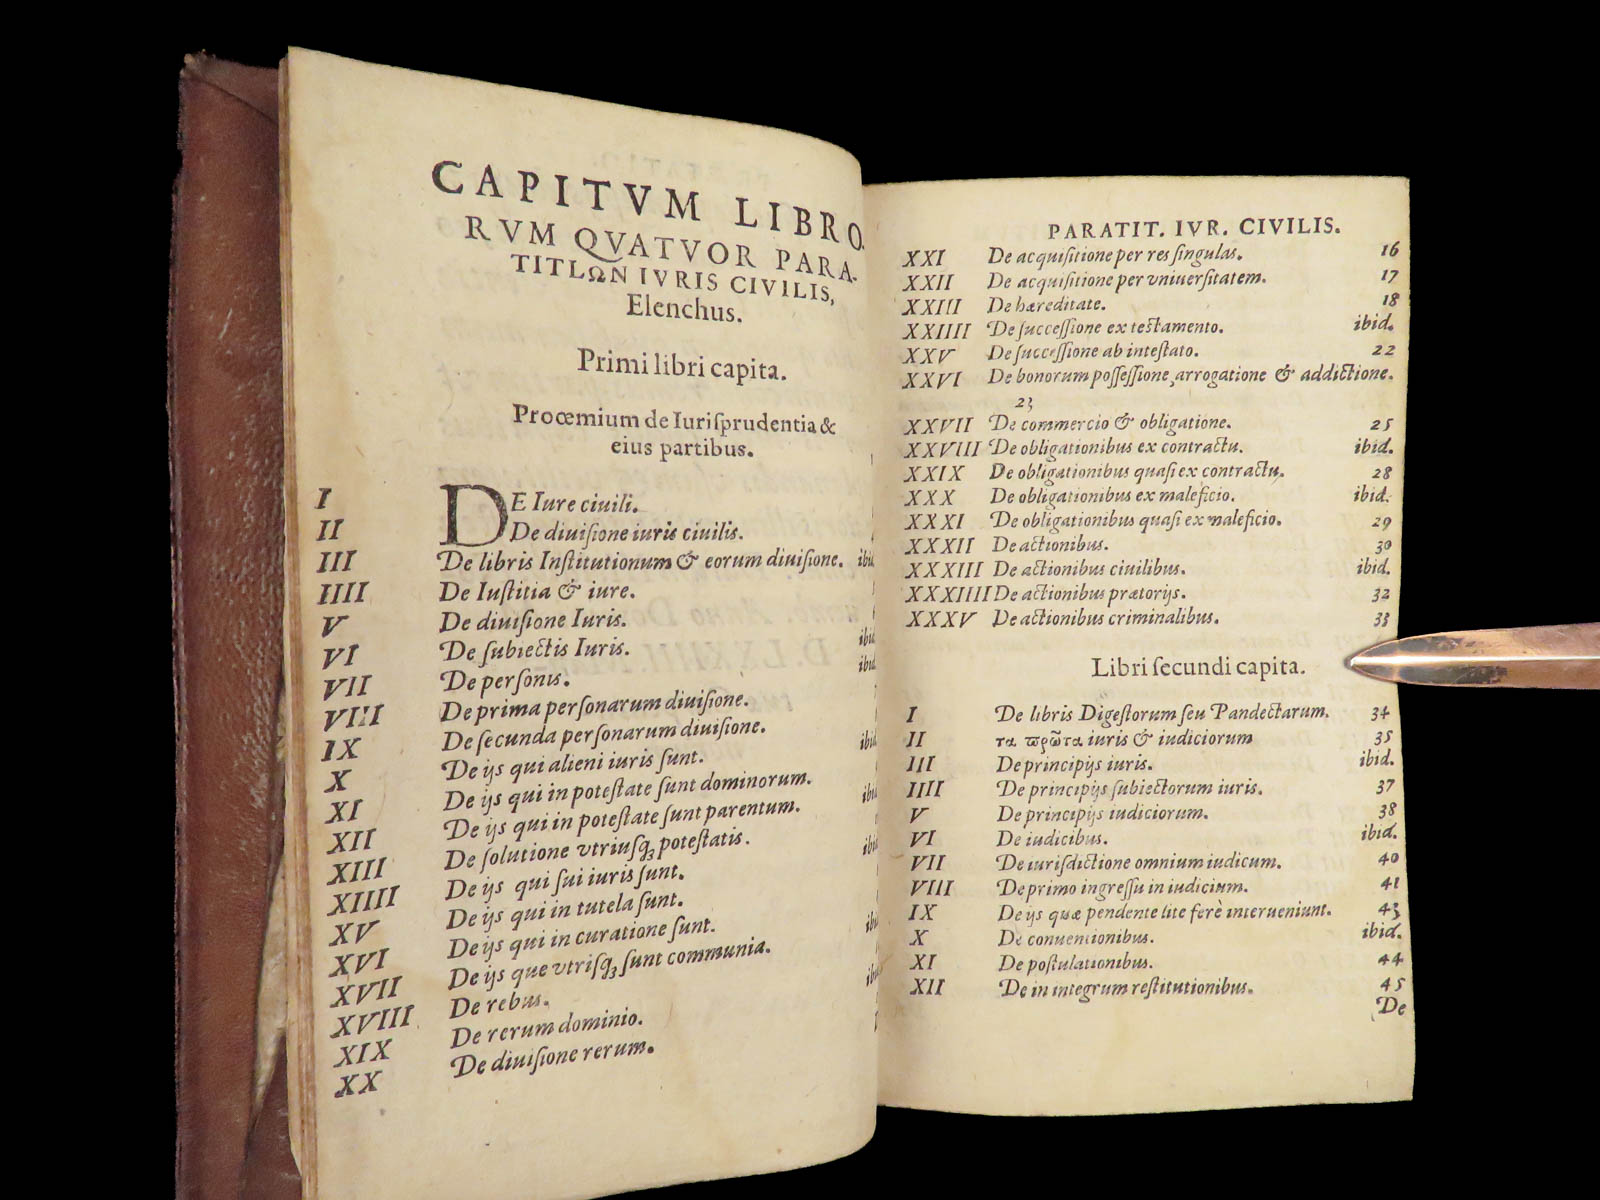 CAPITVM LIBRO.
RVM QVATVOR PARA.
TITLΩN IVRIS CIVILIS,
Elenchus.
Primi libri capita.
Proœmium de Iuriſprudentia &
eius partibus.
I DE Iure ciuili.
II De diuiſione iuris ciuilis.
III De libris Inſtitutionum & eorum diuiſione. ibid
IIII De Iuſtitia & iure.
V De diuiſione Iuris.
VI De ſubiectis Iuris. ibid
VII De perſonis. ibid
VIII De prima perſonarum diuiſione.
IX De ſecunda perſonarum diuiſione.
X De ijs qui alieni iuris ſunt. ibid
XI De ijs qui in poteſtate ſunt dominorum.
XII De ijs qui in poteſtate ſunt parentum. ibid
XIII De ſolutione vtriuſq; poteſtatis.
XIIII De ijs qui ſui iuris ſunt. ibid
XV De ijs qui in tutela ſunt.
XVI De ijs qui in curatione ſunt.
XVII De ijs que vtriſq; ſunt communia. ibi
XVIII De rebus.
XIX De rerum dominio. ibi
XX De diuiſione rerum.
PARATIT. IVR. CIVILIS.
XXI De acquiſitione per res ſingulas. 16
XXII De acquiſitione per vniuerſitatem. 17
XXIII De hæreditate. 18
XXIIII De ſucceſſione ex teſtamento. ibid.
XXV De ſucceſſione ab inteſtato. 22
XXVI De bonorum poſſeſſione, arrogatione & addictione.
23
XXVII De commercio & obligatione. 25
XXVIII De obligationibus ex contractu. ibid.
XXIX De obligationibus quaſi ex contractu. 28
XXX De obligationibus ex maleficio. ibid.
XXXI De obligationibus quaſi ex maleficio. 29
XXXII De actionibus. 30
XXXIII De actionibus ciuilibus. ibid.
XXXIIII De actionibus prætorijs. 32
XXXV De actionibus criminalibus. 33
Libri ſecundi capita.
I De libris Digeſtorum ſeu Pandectarum. 34
II τα πρῶτα iuris & iudiciorum 35
III De principijs iuris. ibid.
IIII De principijs ſubiectorum iuris. 37
V De principijs iudiciorum. 38
VI De iudicibus. ibid.
VII De iuriſdictione omnium iudicum. 40
VIII De primo ingreſſu in iudicium. 41
IX De ijs quæ pendente lite ferè interueniunt. 43
X De conuentionibus. ibid.
XI De poſtulationibus. 44
XII De in integrum reſtitutionibus. 45
De